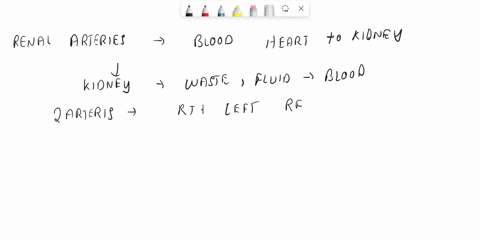 RENAL ARTERIES → BLOOD HEART to KIDNEY
↓
KIDNEY → WASTE, FLUID → BLOOD
2 ARTERIS → RT+ LEFT RE